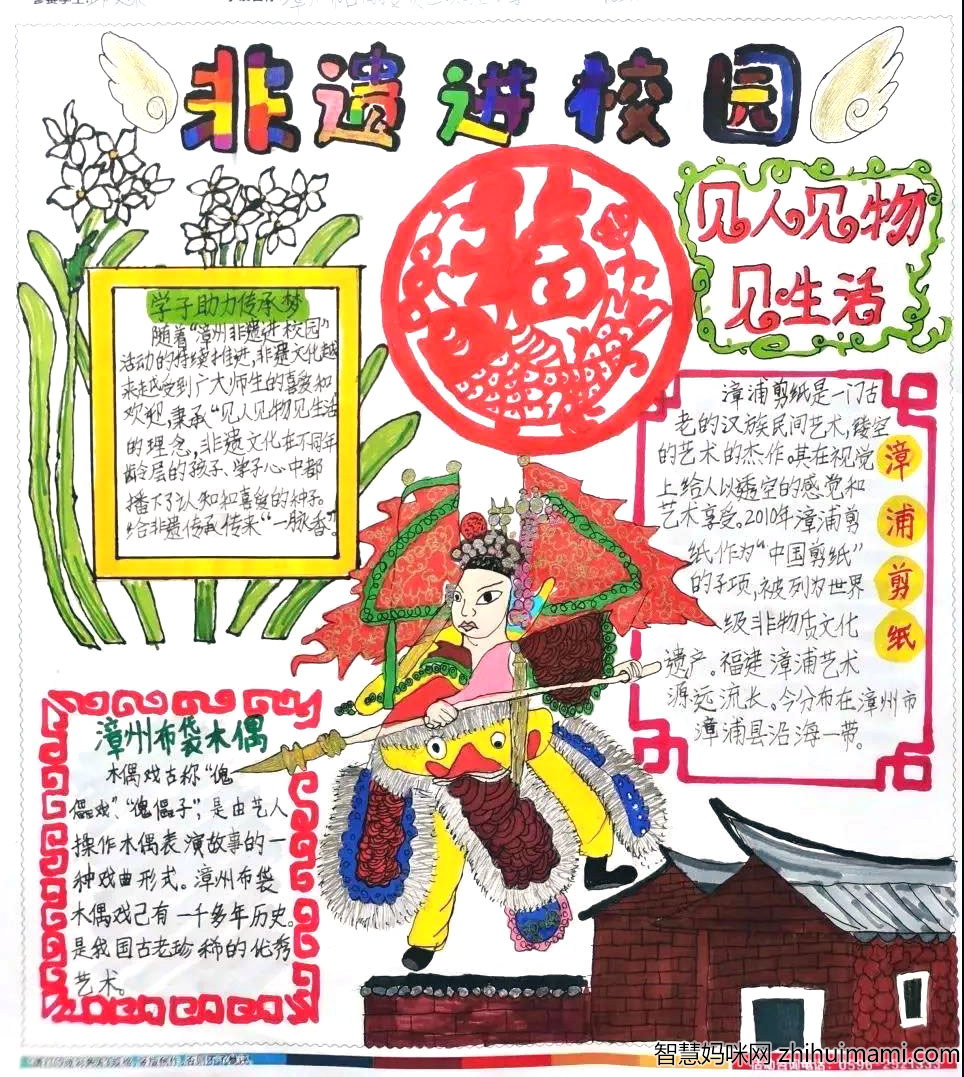 非遗进校园
福
见人见物
见生活
学子助力传承梦
随着“漳州非遗进校园”
活动的持续推进,非遗文化越
来越受到广大师生的喜爱和
欢迎,秉承“见人见物见生活
的理念,非遗文化在不同年
龄层的孩子、学子心中都
播下了认知和喜爱的种子。
给非遗传承传来“一脉香”
漳浦剪纸
漳浦剪纸是一门古
老的汉族民间艺术,镂空
的艺术的杰作。其在视觉
上给人以透空的感觉和
艺术享受。2010年漳浦剪
纸作为“中国剪纸”
的子项,被列为世界
级非物质文化
遗产。福建漳浦艺术
源远流长。今分布在漳州市
漳浦县沿海一带。
漳州布袋木偶
木偶戏古称“傀
儡戏”、“傀儡子”,是由艺人
操作木偶表演故事的一
种戏曲形式。漳州布袋
木偶戏已有一千多年历史。
是我国古老珍稀的优秀
艺术。
智慧妈咪网 zhihuimami.com